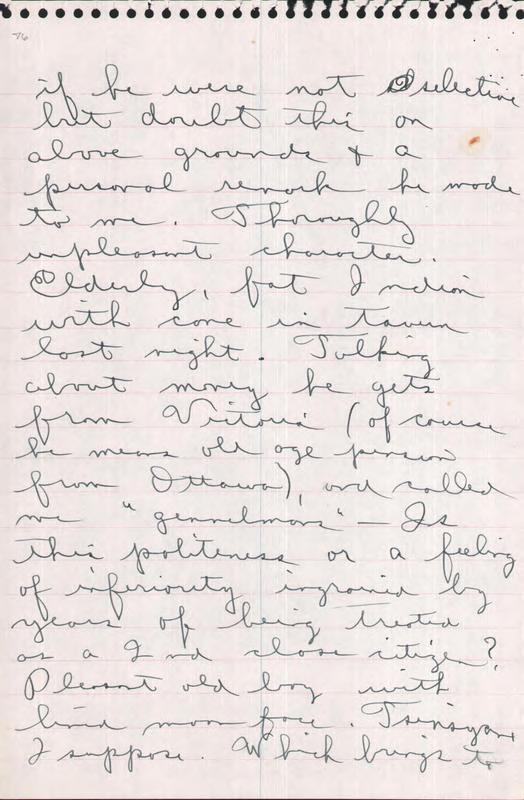 76
if he were not selective
but doubt this on
above grounds & a
personal remark he made
to me. Thoroughly
unpleasant character.
Elderly, fat Indian
with cane in tavern
last night. Talking
about money he gets
from Victoria (of course
he means old age pension
from Ottawa), and called
me "gennelmans" — Is
this politeness or a feeling
of inferiority ingrained by
years of being treated
as a 2nd class citizen?
Pleasant old boy with
lined moon face. Tsimsyan
I suppose. Which brings to